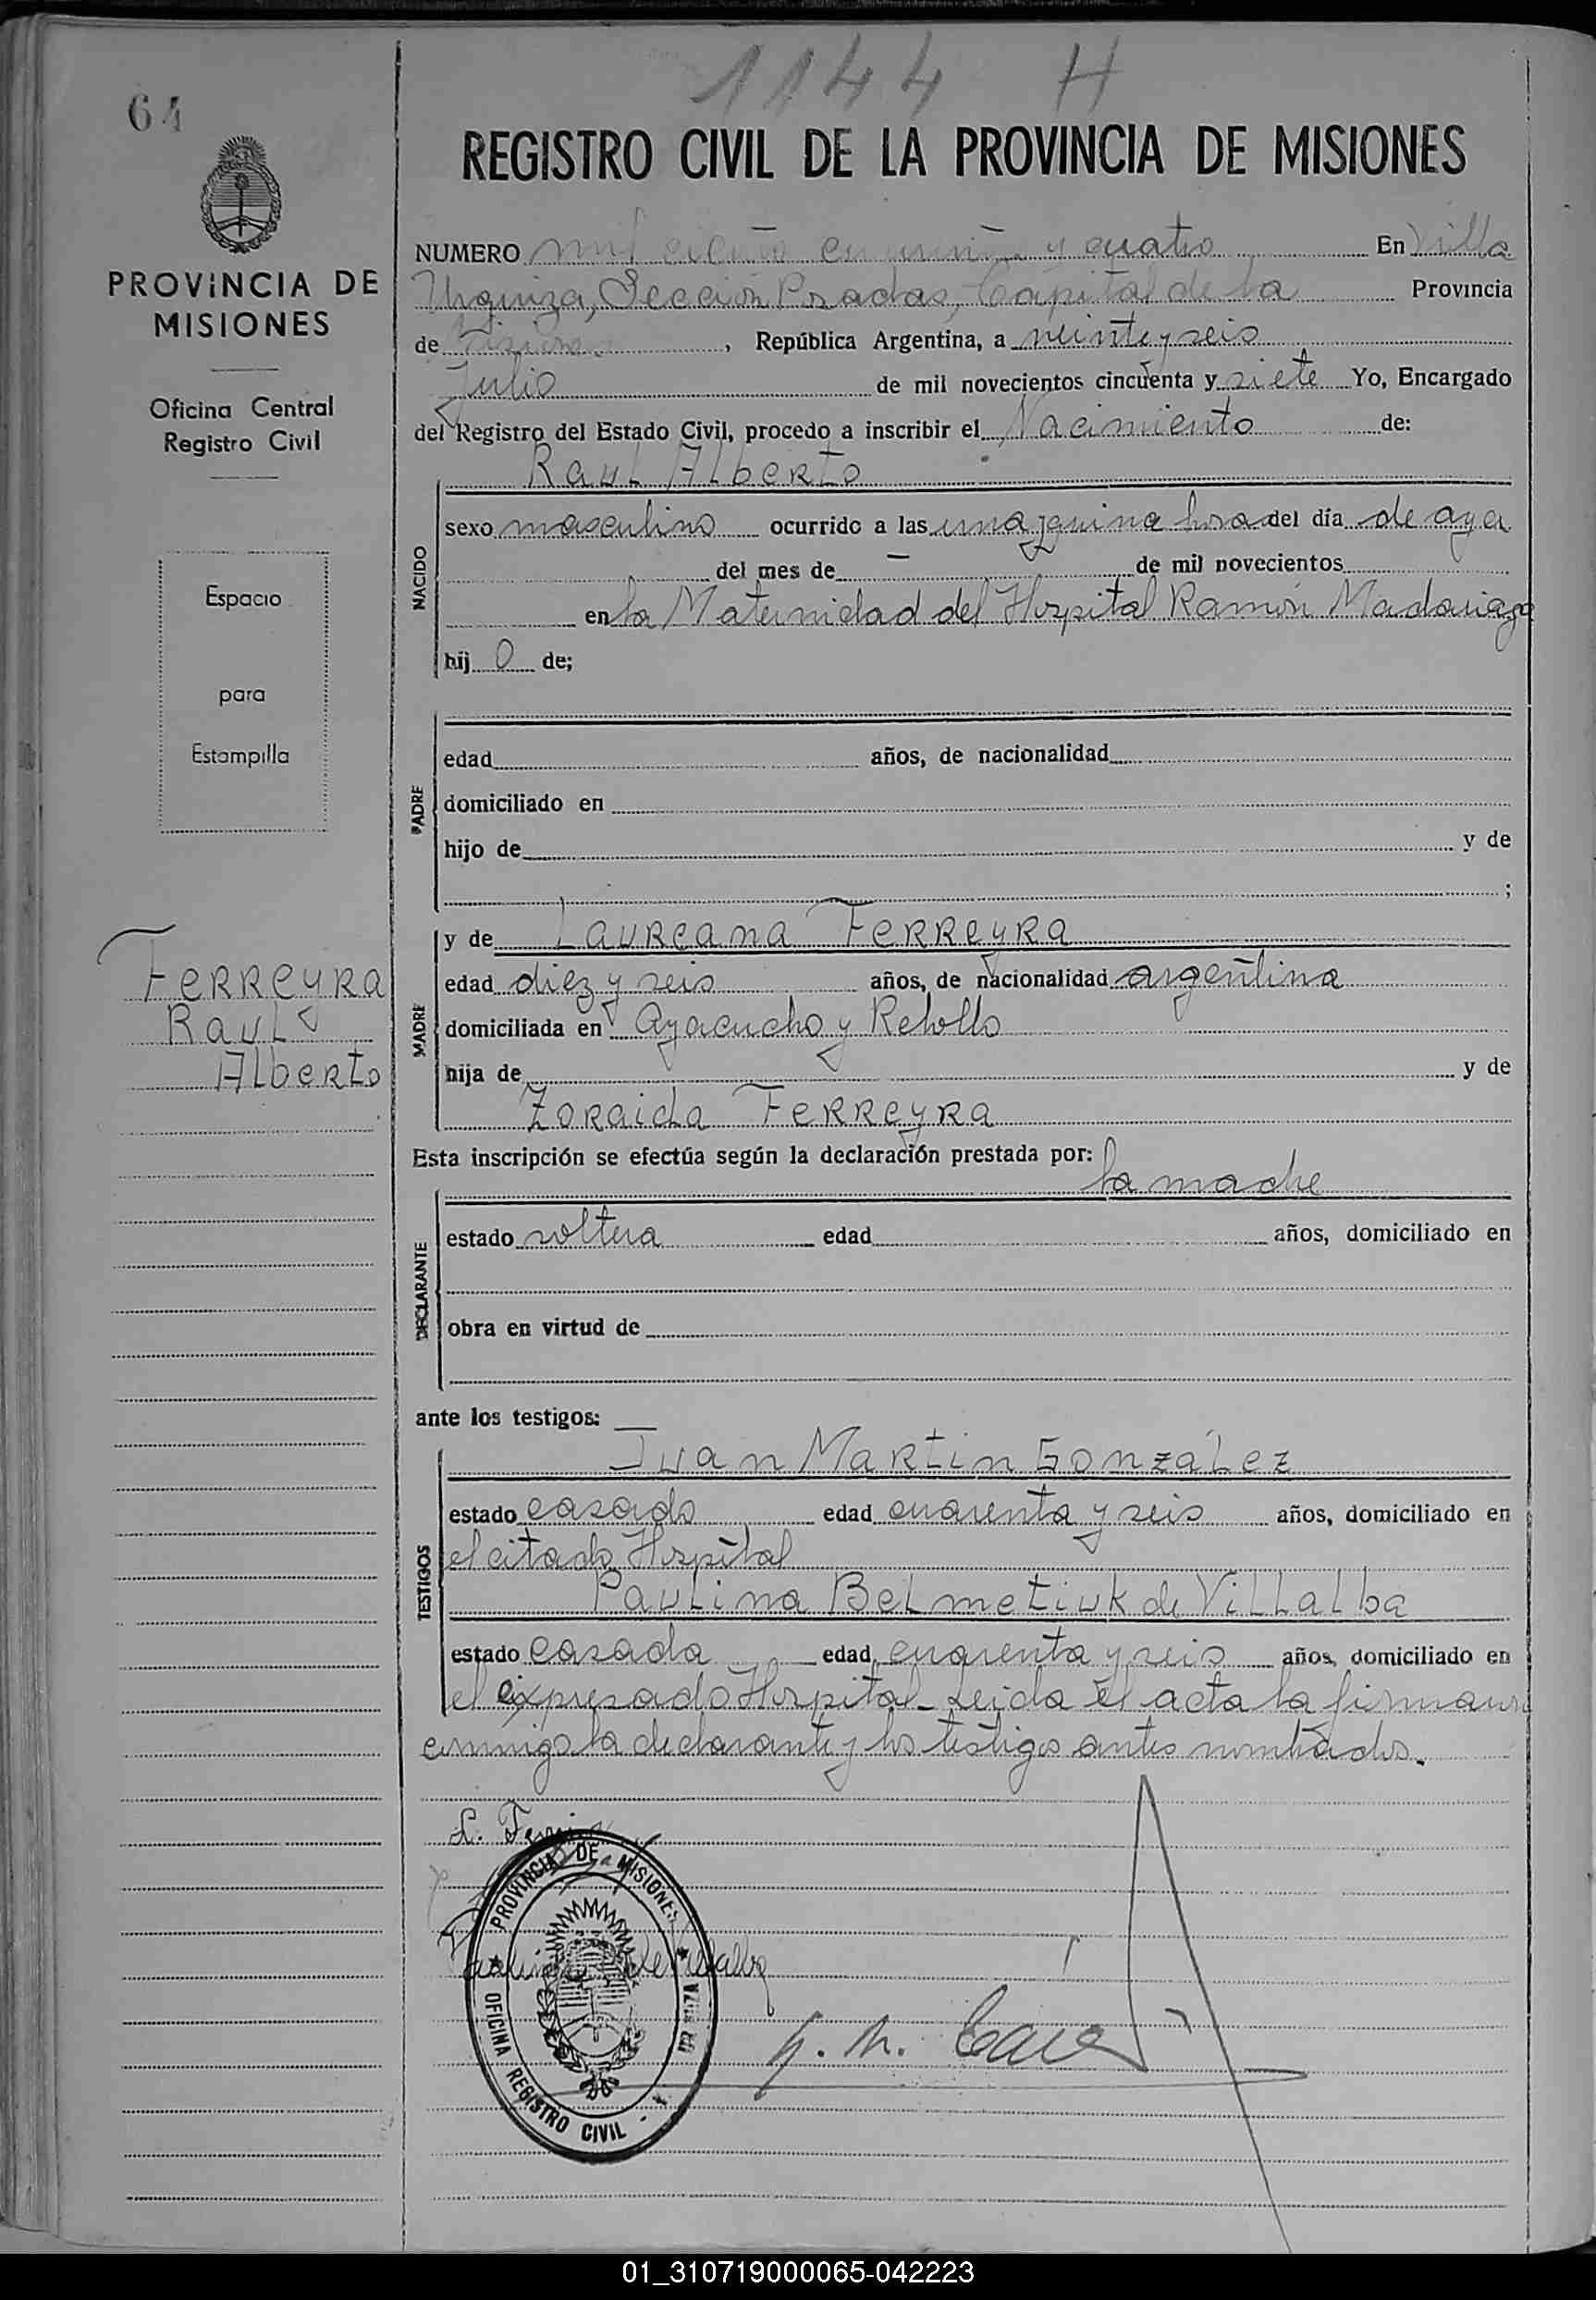 1144 H
64
REGISTRO CIVIL DE LA PROVINCIA DE MISIONES
PROVINCIA DE
MISIONES
Oficina Central
Registro Civil
Espacio
para
Estampilla
Ferreyra
Raul
Alberto
NUMERO mil ciento cuarenta y cuatro En Villa
Urquiza, Sección Posadas, Capital de la Provincia
de Misiones, República Argentina, a veinte y seis
Julio de mil novecientos cincuenta y siete Yo, Encargado
del Registro del Estado Civil, procedo a inscribir el Nacimiento de:
Raul Alberto
NACIDO
sexo masculino ocurrido a las una y quince horas del día de ayer
del mes de — de mil novecientos
en la Maternidad del Hospital Ramón Madariaga
hij o de;
PADRE
edad años, de nacionalidad
domiciliado en
hijo de y de
;
MADRE
y de Laureana Ferreyra
edad diez y seis años, de nacionalidad argentina
domiciliada en Ayacucho y Rebollo
hija de y de
Zoraida Ferreyra
Esta inscripción se efectúa según la declaración prestada por:
la madre
DECLARANTE
estado soltera edad años, domiciliado en
obra en virtud de
ante los testigos:
Juan Martin González
TESTIGOS
estado casado edad cuarenta y seis años, domiciliado en
el citado Hospital
Paulina Belmetiuk de Villalba
estado casada edad cuarenta y seis años, domiciliado en
el expresado Hospital - Leida el acta la firmaron
conmigo la declarante y los testigos antes nombrados.
L.
PROVINCIA DE MISIONES
OFICINA REGISTRO CIVIL
Paulina de Villalba
01_310719000065-042223